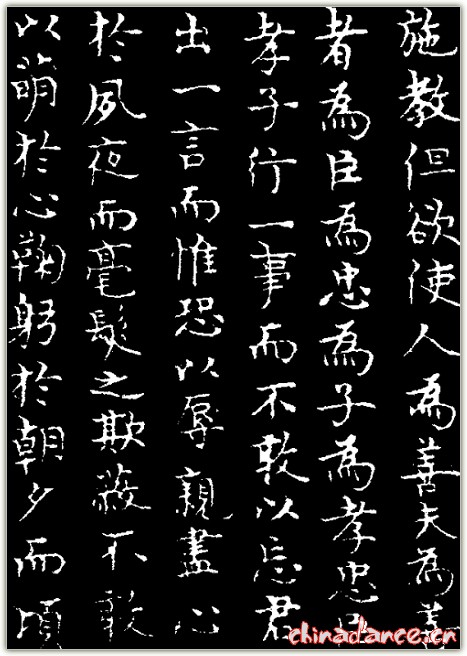 施教但欲使人為善夫為善
者為臣為忠為子為孝忠臣
孝子行一事而不敢以忘君
出一言而惟恐以辱親盡心
於夙夜而毫髮之欺蔽不敢
以萌於心鞠躬於朝夕而頃
chinadance.cn